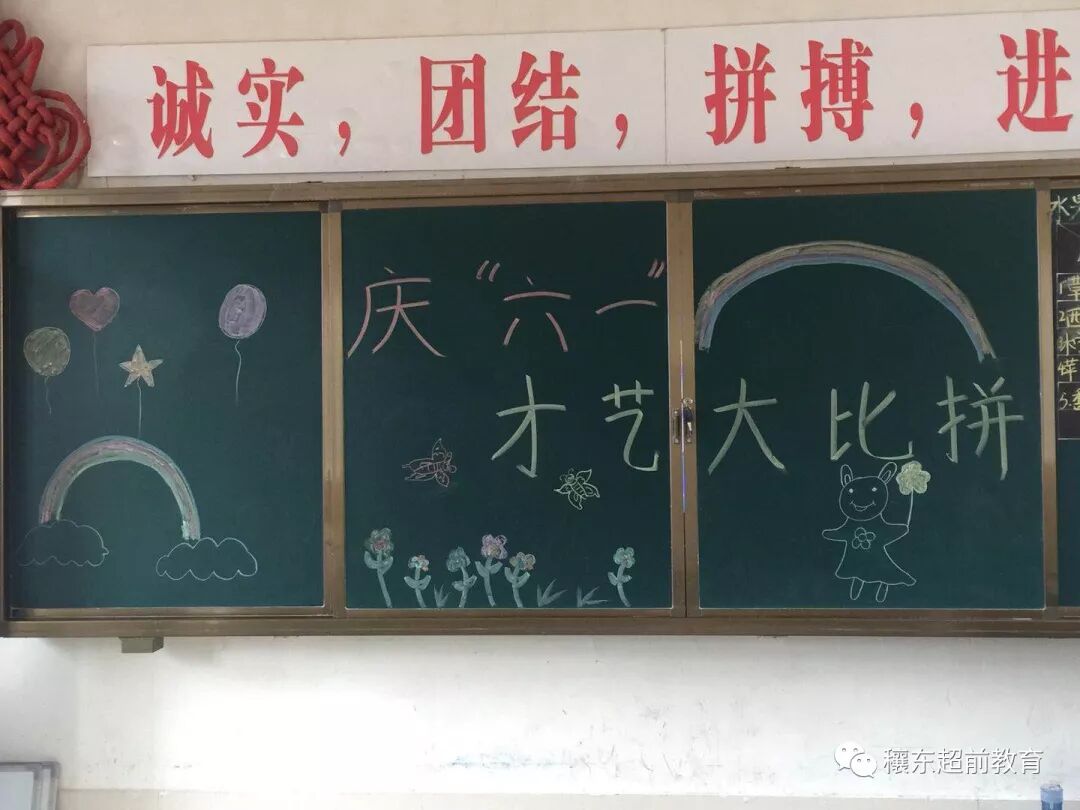 诚实，团结，拼搏，进
庆“六一”
才艺大比拼
穰东超前教育